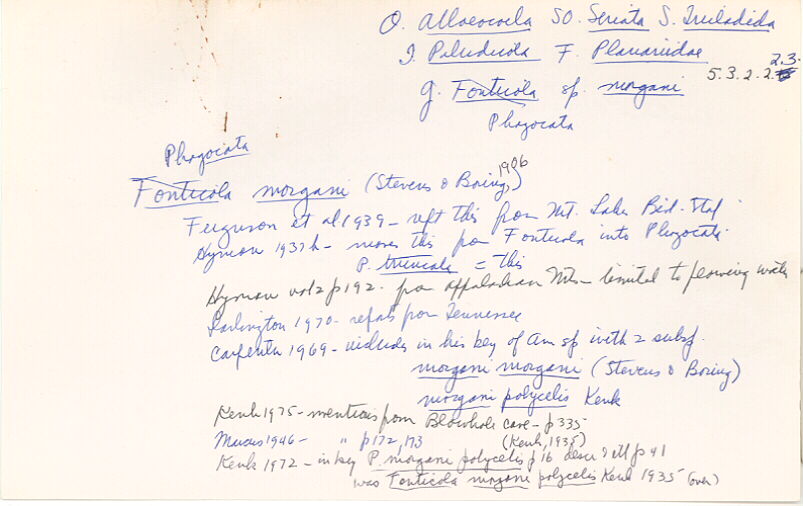 O. Alloeocoela SO. Seriata S. Tricladida
I. Paludicola F. Planariidae
5.3.2.2. 2.3.
g. Fonticola sp. morgani
Phagocata
Phagocata
Fonticola morgani (Stevens & Boring, 1906)
Ferguson et al 1939 - rept this from Mt. Lake Biol. Sta.
Hyman 1937b - moves this from Fonticola into Phagocata.
P. truncata = this
Hyman vol 2 p 192. from Appalachian Mts - limited to flowing water
Darlington 1970 - repts from Tennessee
Carpenter 1969 - includes in his key of Am sp with 2 subsp.
morgani morgani (Stevens & Boring)
morgani polycelis Kenk
Kenk 1975 - mentions from Blowhole cave - p 335
Marcus 1946 - " p 172, 173 (Kenk, 1935)
Kenk 1972 - in key P. morgani polycelis p 16 descr & ill p 41
was Fonticola morgani polycelis Kenk 1935 (over)